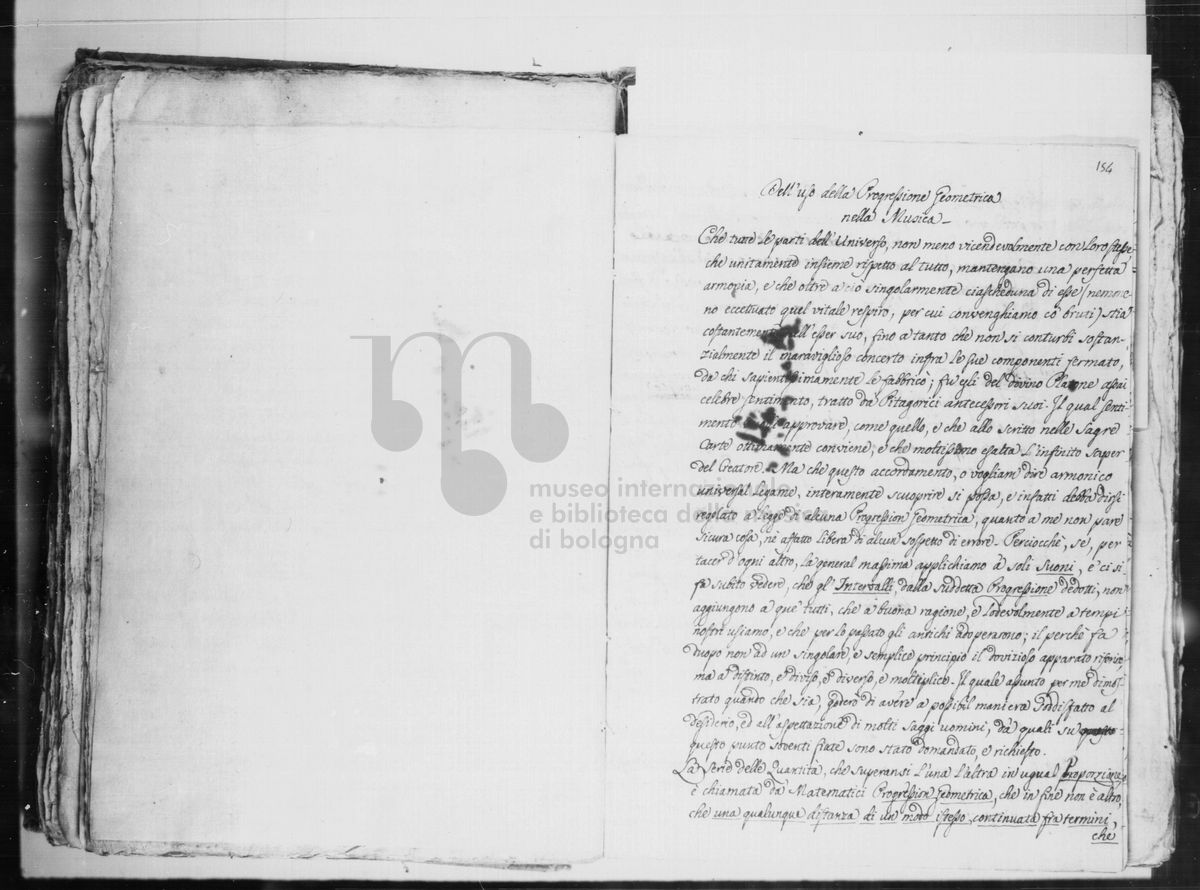 154
Dell'uso della Progressione Geometrica
nella Musica
Che tutte le parti dell'Universo, non meno vicendevolmente con loro stesse
che unitamente insieme rispetto al tutto, mantengano una perfetta
armonia, e che oltre a ciò singolarmente ciascheduna di esse (nemme-
no eccettuato quel vitale respiro, per cui convenghiamo co' bruti) stia
costantemente esser suo, fino a tanto che non si conturbi sostan-
zialmente il maraviglioso concerto infra le sue componenti fermato,
da chi sapientissimamente le fabbricò; fu egli del divino Platone assai
celebre sentimento, tratto da Pitagorici antecessori suoi. Il qual senti-
mento approvare, come quello, e che allo scritto nelle Sagre
Carte ottimamente conviene, e che moltissimo esalta l'infinito saper
del Creatore. Ma che questo accordamento, o vogliam dire armonico
universal legame, interamente scuoprire si possa, e infatti debba dirsi
regolato a legge di alcuna Progression Geometrica, quanto a me non pare
sicura cosa, nè affatto libera di alcun sospetto di errore. Perciocchè, se, per
tacer d'ogni altro, la general massima applichiamo a' soli Suoni, e' ci si
fa subito vedere, che gl'Intervalli, dalla suddetta Progressione dedotti, non
aggiungono a que' tutti, che a buona ragione, e lodevolmente a tempi
nostri usiamo, e che per lo passato gli antichi adoperarono; il perchè fa
duopo non ad un singolare, e semplice principio il dovizioso apparato riferire,
ma a distinto, e diviso, e diverso, e moltiplice. Il quale apunto per me dimos-
trato quando che sia, goderò di avere a possibil maniera soddisfatto al
desiderio, ed all'aspettazione di molti saggi uomini, da quali su questo
questo punto soventi fiate sono stato domandato, e richiesto.
La Serie delle Quantità, che superansi l'una l'altra in ugual proporzione,
è chiamata da Matematici Progression Geometrica, che in fine non è altro,
che una qualunque distanza di un modo istesso continuata fra termini,
che
museo internazionale
e biblioteca della musica
di bologna